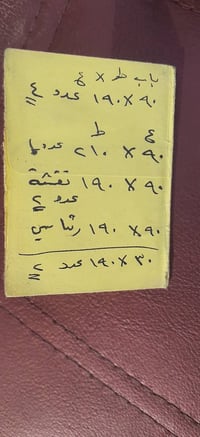 باب ط × ع
٩٠ × ١٩٠ عدد ٤
ع ط
٩٠ × ٢١٠ عدد
٩٠ × ١٩٠ نقشة
عدد ٢
٩٠ × ١٩٠
٣٠ × ١٩٠ عدد ٢